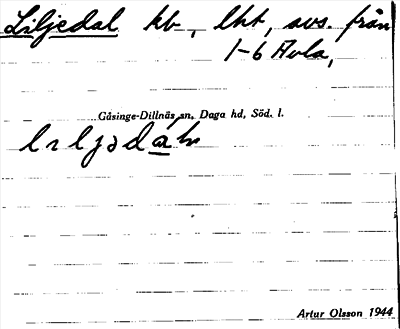 Liljedal kb, lht, avs. från
1-6 Avla,
Gåsinge-Dillnäs sn, Daga hd, Söd. l.
Artur Olsson 1944